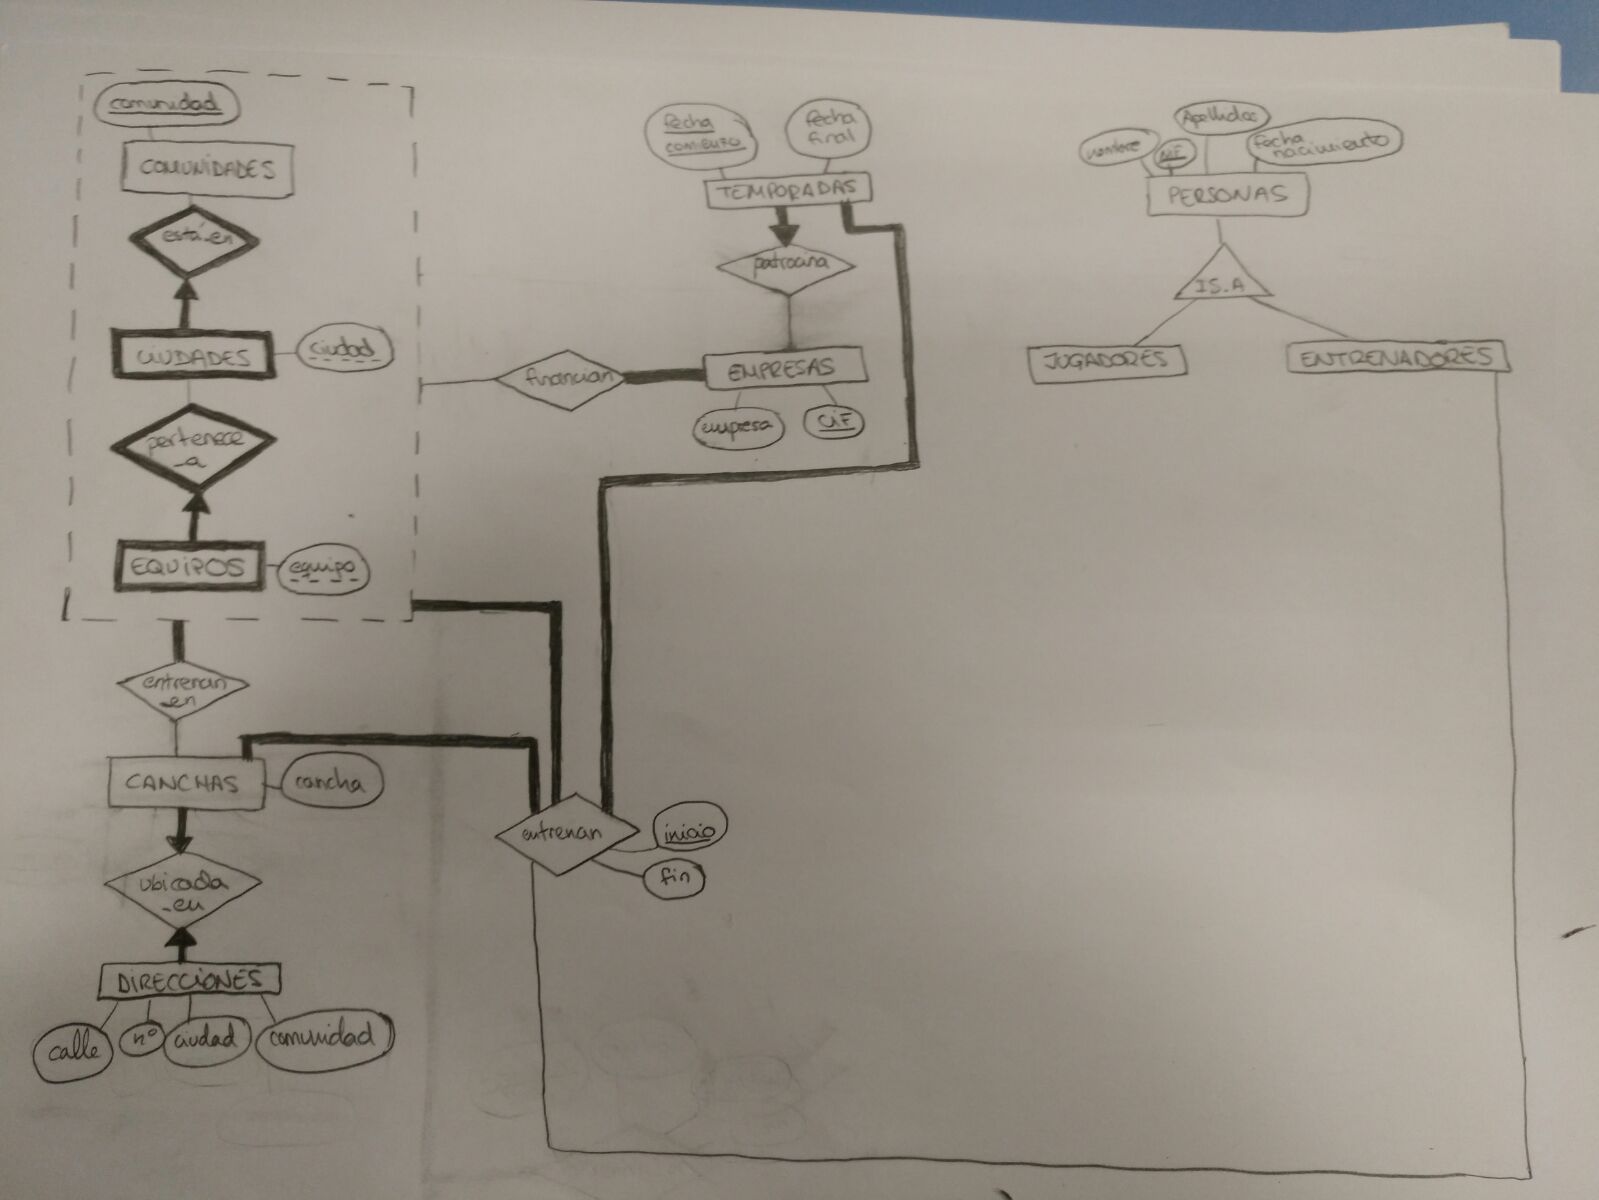 comunidad
COMUNIDADES
está-en
CIUDADES
ciudad
pertenece
-a
EQUIPOS
equipo
entrenan
-en
CANCHAS
cancha
ubicada
-en
DIRECCIONES
calle
nº
ciudad
comunidad
fecha
comienzo
fecha
final
TEMPORADAS
patrocina
financian
EMPRESAS
empresa
CIF
entrenan
inicio
fin
nombre
NIF
Apellidos
fecha
nacimiento
PERSONAS
IS-A
JUGADORES
ENTRENADORES